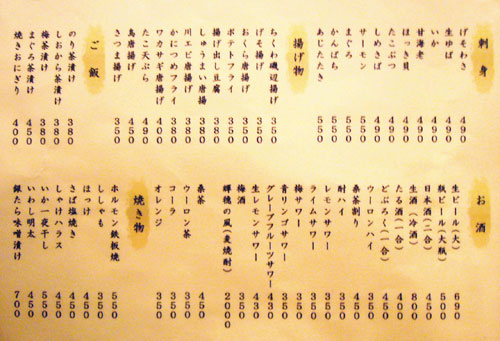 刺身
げそわさ 490
生ゆば 490
いか 490
甘海老 490
ほっき貝 490
たこぶつ 490
しめさば 490
サーモン 550
まぐろ 550
かんぱち 550
あじたたき 550
揚げ物
ちくわ磯辺揚げ 350
げそ揚げ 350
おくら唐揚げ 350
ポテトフライ 350
揚げ出し豆腐 380
しゅうまい唐揚 380
川エビ唐揚げ 380
かにつめフライ 380
ワカサギ唐揚げ 400
たこ天ぷら 490
鳥唐揚げ 450
さつま揚げ 350
ご飯
のり茶漬け 380
しおから茶漬け 380
梅茶漬け 380
まぐろ茶漬け 450
焼きおにぎり 400
お酒
生ビール(大) 690
瓶ビール(大瓶) 500
日本酒(二合) 450
生酒(冷酒) 800
たる酒(一合) 400
どぶろく(一合) 450
ウーロンハイ 350
桑茶割り 450
酎ハイ 350
レモンサワー 350
ライムサワー 350
梅サワー 350
青リンゴサワー 350
グレープフルーツサワー 430
生レモンサワー 430
梅酒 350
輝穂の風(麦焼酎) 2000
桑茶 450
ウーロン茶 350
コーラ 350
オレンジ 350
焼き物
ホルモン鉄板焼 550
ししゃも 350
ほっけ 450
さば塩焼き 450
しゃけハラス 450
いか一夜干し 550
いわし明太 450
銀たら味噌漬け 700